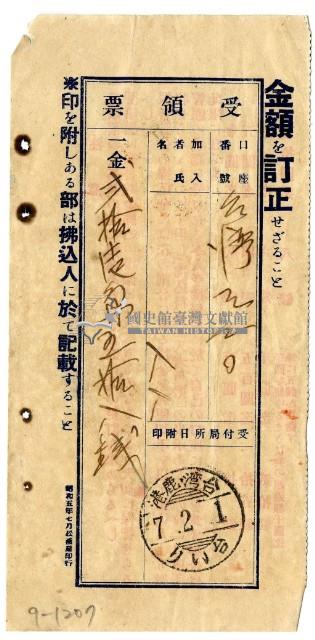 金額を訂正せざること
受領票
口座番號
台灣
加入者氏名
一金
貳拾
五拾一錢
受付局所日附印
台湾鹿港
7.2.1
※印を附しある部は拂込人に於て記載すること
昭和五年七月松浦屋印行
國史館臺灣文獻館
TAIWAN HISTORICA
9-1207